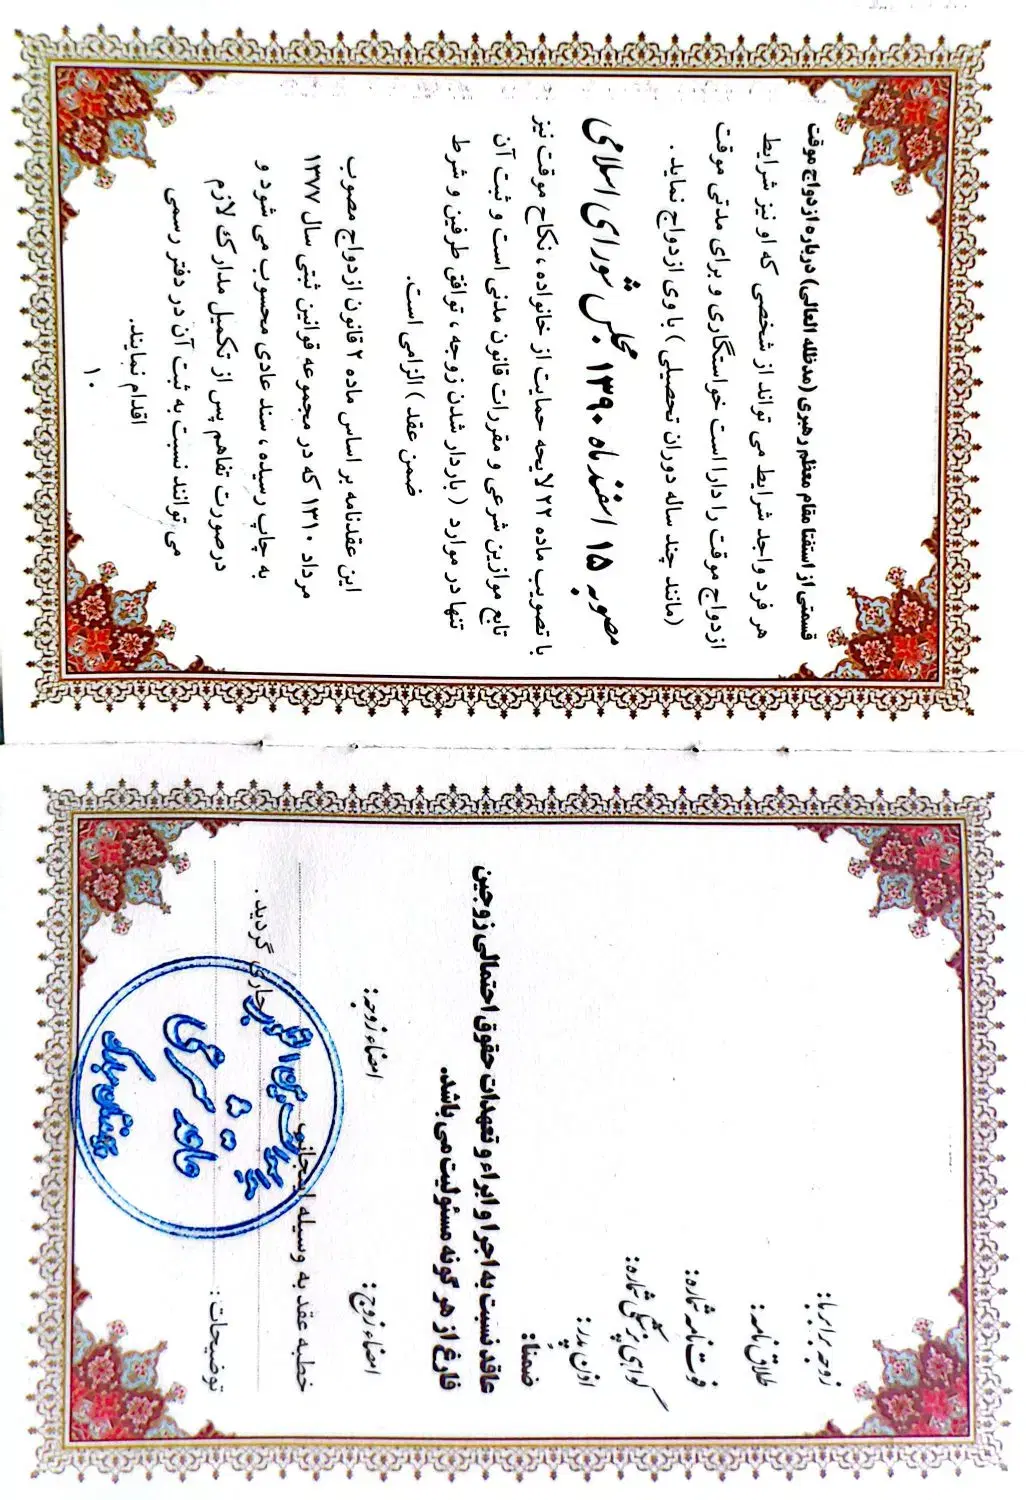 قسمتی از استفتا مقام معظم رهبری (مدظله العالی) درباره ازدواج موقت
هر فرد واجد شرایط می تواند از شخصی که او نیز شرایط
ازدواج موقت را دارا است خواستگاری و برای مدتی موقت
(مانند چند ساله دوران تحصیلی) با وی ازدواج نماید.
مصوبه ۱۵ اسفند ماه ۱۳۹۰ مجلس شورای اسلامی
با تصویب ماده ۲۲ لایحه حمایت از خانواده، نکاح موقت نیز
تابع موازین شرعی و مقررات قانون مدنی است و ثبت آن
تنها در موارد (باردار شدن زوجه، توافق طرفین و شرط
ضمن عقد) الزامی است.
این عقدنامه بر اساس ماده ۲ قانون ازدواج مصوب
مرداد ۱۳۱۰ که در مجموعه قوانین ثبتی سال ۱۳۷۷
به چاپ رسیده، سند عادی محسوب می شود و
درصورت تفاهم پس از تکمیل مدارک لازم
می توانند نسبت به ثبت آن در دفتر رسمی
اقدام نمایند.
۱۰
زوجه برابر با:
طلاق نامه:
فوت نامه شماره:
گواهی پزشکی شماره:
اذن پدر:
ضمناً:
عاقد نسبت به اجرا و ابراء و تعهدات حقوق احتمالی زوجین
فارغ از هر گونه مسئولیت می باشد.
امضاء زوج: امضاء زوجه:
خطبه عقد به وسیله اینجانب
جاری گردید.
توضیحات: